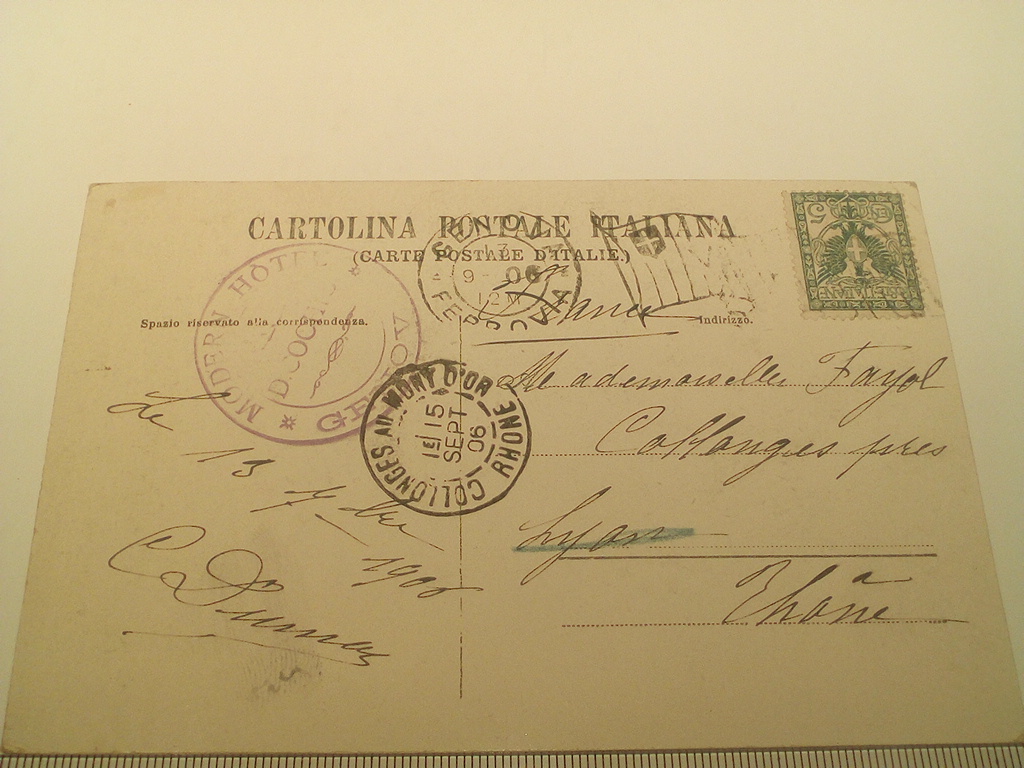 CARTOLINA POSTALE ITALIANA
(CARTE POSTALE D'ITALIE.)
Spazio riservato alla corrispondenza.
Indirizzo.
MODERN HÔTEL
GENOVA
13
9 06
12M
FERROVIA
CENTESIMI 5
France
Mademoiselle Fayol
Collonges près
Lyon
Rhône
COLLONGES AU MONT D'OR RHONE
1E 15
SEPT
06
le
13 7bre
1906
C Dumas